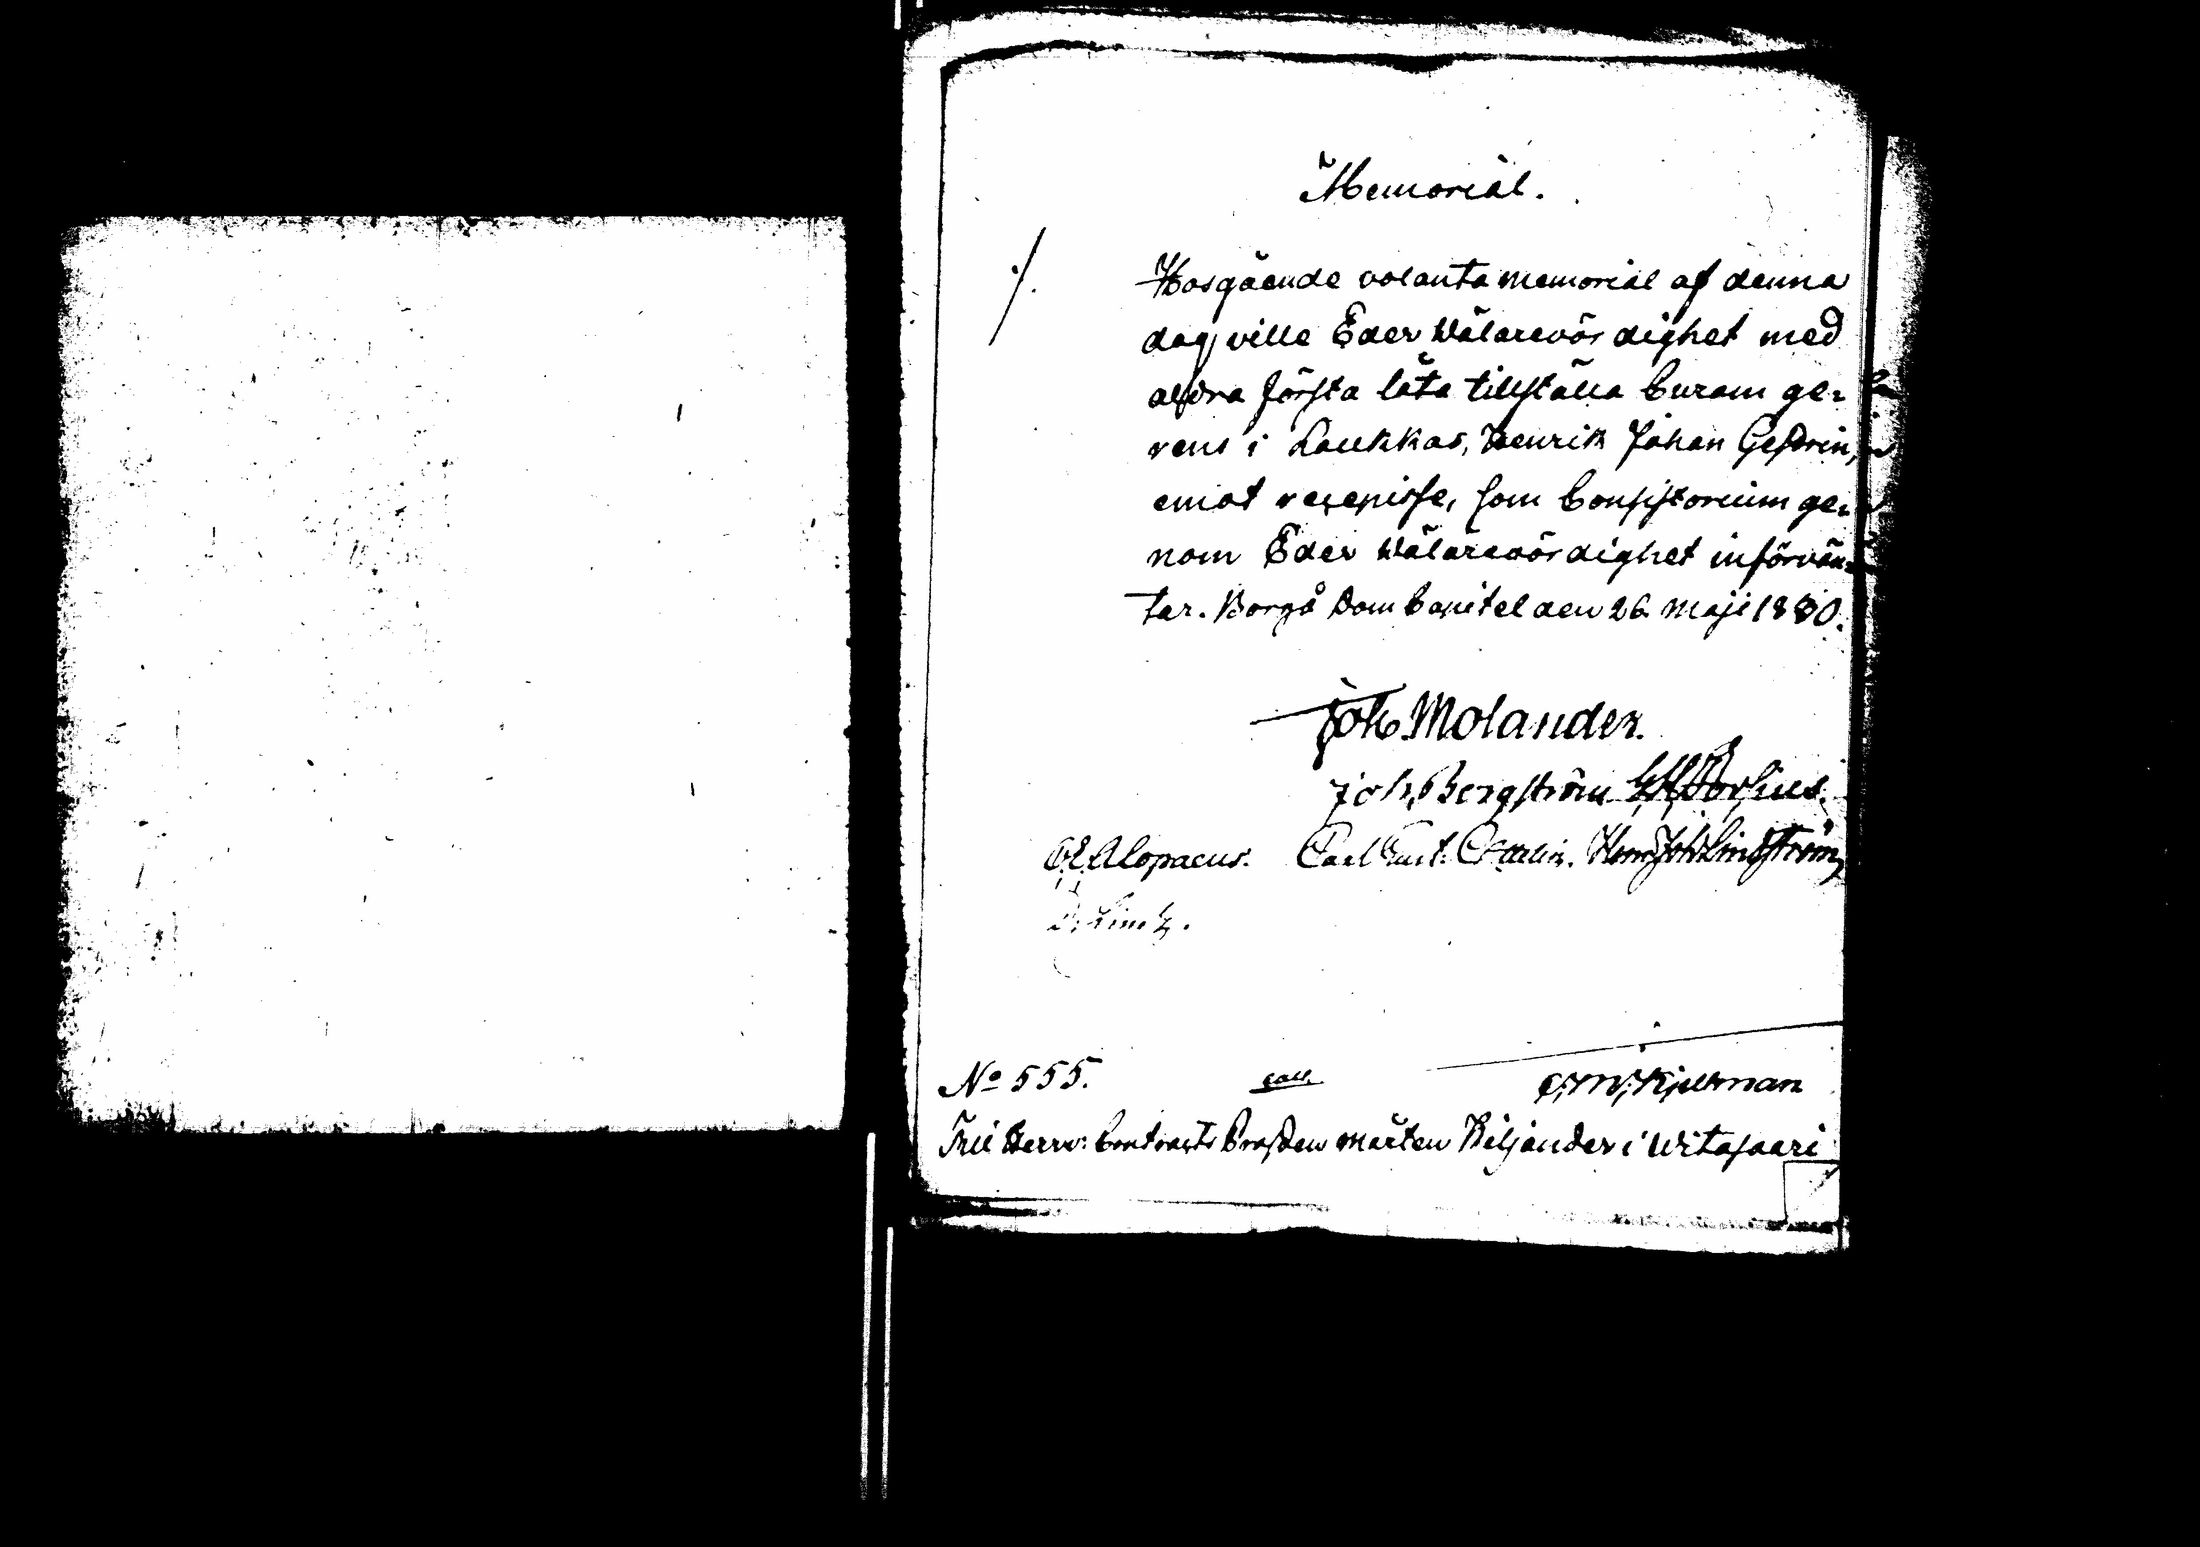 Memorial.
./.
Hosgående volanta memorial af denna
dag ville Eder Wälarevördighet med
aldra första låta tillställa Curam ge-
rens i Laukkas, Henrik Johan Gestrin,
emot recepisse, som Consistorium ge-
nom Eder Wälärevördighet införvän-
tar. Borgå Dom Capitel den 26 Maji 1830.
Joh. Molander.
Joh. Bergström
Alopaeus. Carl Gust.
No 555.
coll.
Till Herr: Contracts Prosten Mårten Kiljander i Witasaari